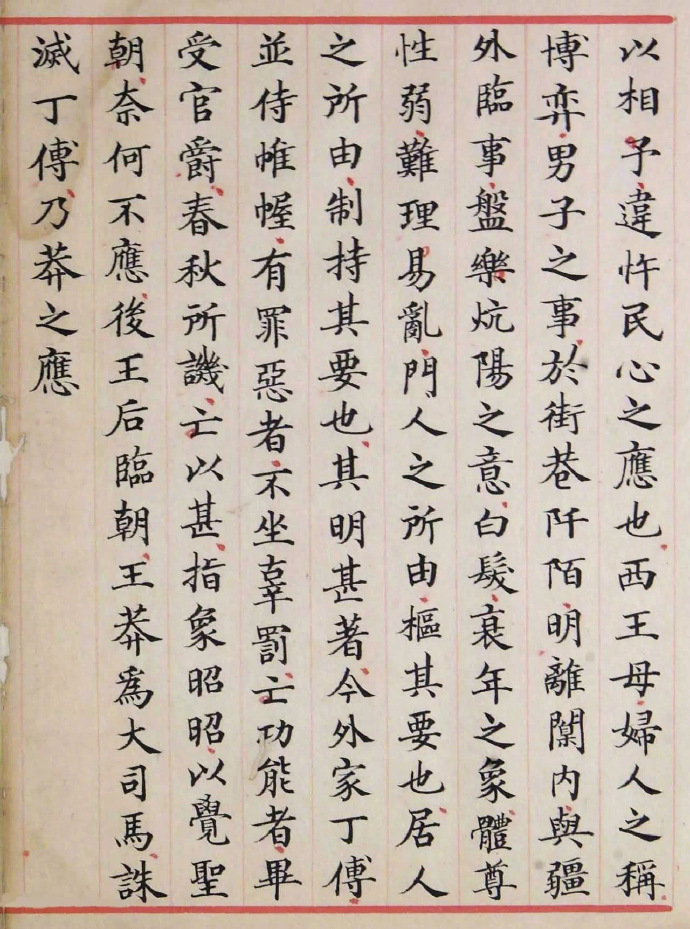 以相予違忤民心之應也西王母婦人之稱
博弈男子之事於街巷阡陌明離闑内與疆
外臨事盤樂炕陽之意白髮衰年之象體尊
性弱難理易亂門人之所由樞其要也居人
之所由制持其要也其明甚著今外家丁傅
並侍帷幄有罪惡者不坐辜罰亡功能者畢
受官爵春秋所譏亡以甚指象昭昭以覺聖
朝奈何不應後王后臨朝王莽爲大司馬誅
滅丁傅乃莽之應